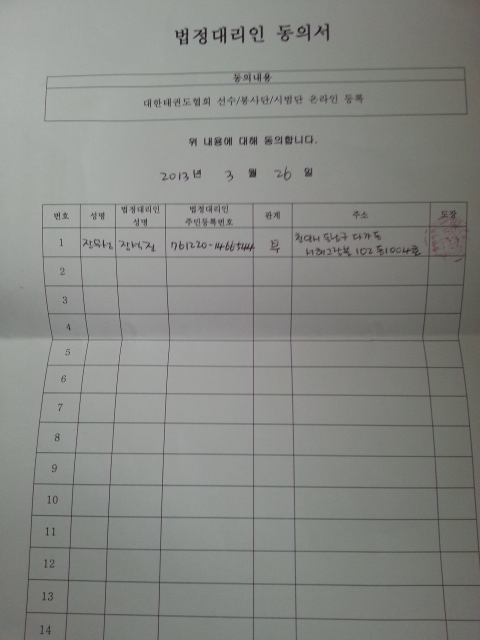 법정대리인 동의서
동의내용
대한태권도협회 선수/봉사단/시범단 온라인 등록
위 내용에 대해 동의합니다.
2013년 3월 26일
번호 성명 법정대리인 성명 법정대리인 주민등록번호 관계 주소 도장
1 부 천안시 동남구 다가동
102동 1004호
2
3
4
5
6
7
8
9
10
11
12
13
14